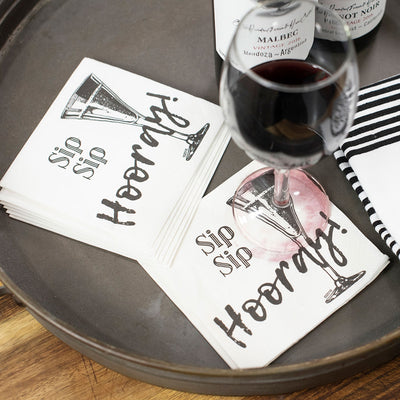 MALBEC
VINTAGE 2016
Mendoza - Argentina
NOT NOIR
Sip
Sip
Hooray!
Sip
Sip
Hooray!